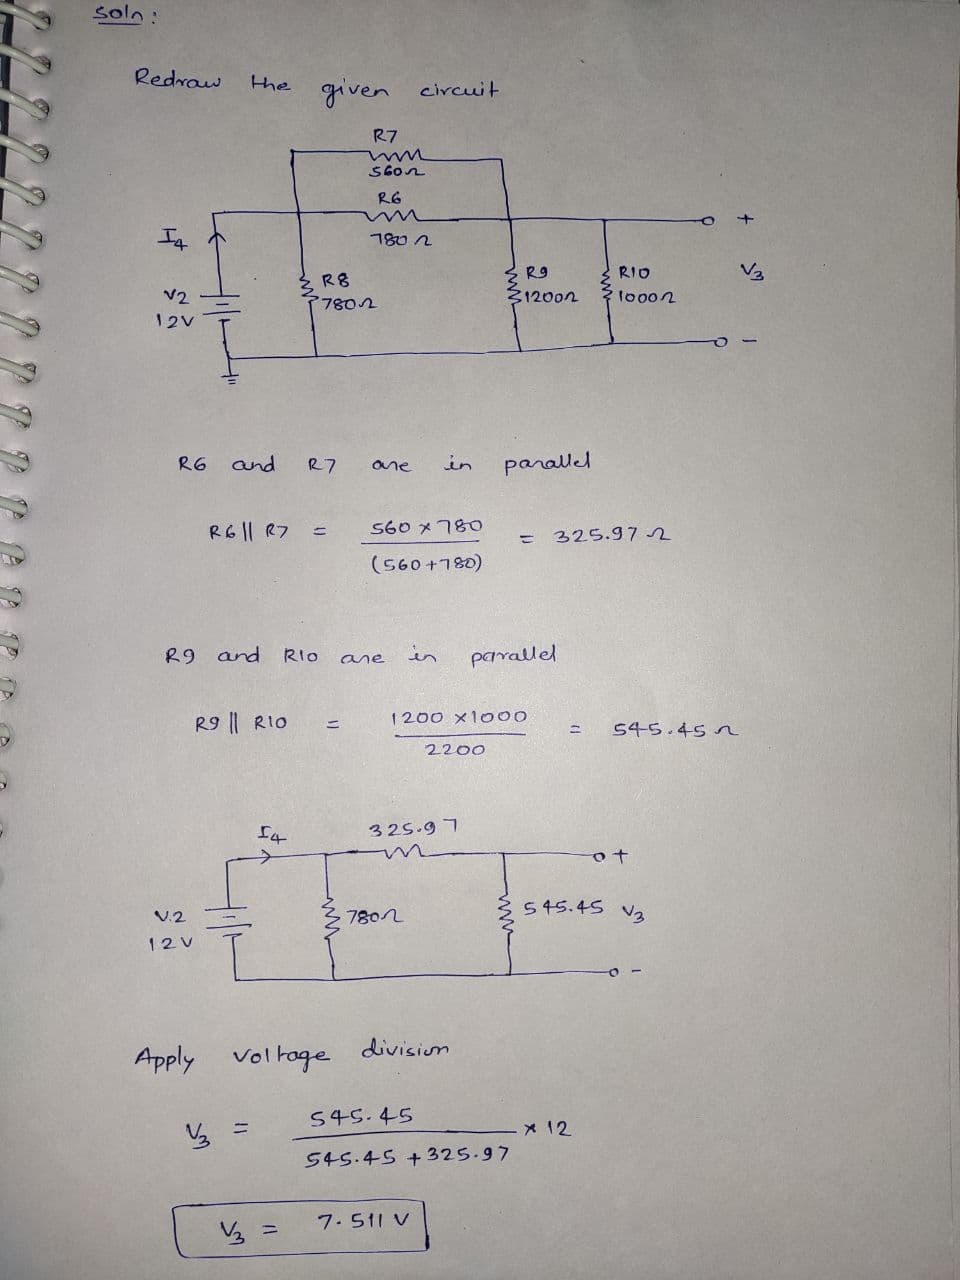 Soln:
Redraw the given circuit
R7
560Ω
R6
780Ω
I4
V2
12V
R8
780Ω
R9
1200Ω
R10
1000Ω
+
V3
-
R6 and R7 are in parallel
R6 || R7 = 560 x 780 / (560+780) = 325.97 Ω
R9 and R10 are in parallel
R9 || R10 = 1200 x1000 / 2200 = 545.45 Ω
I4
325.97
+
V.2
12V
780Ω
545.45
V3
-
Apply voltage division
V3 = 545.45 / 545.45 + 325.97 x 12
V3 = 7.511 V